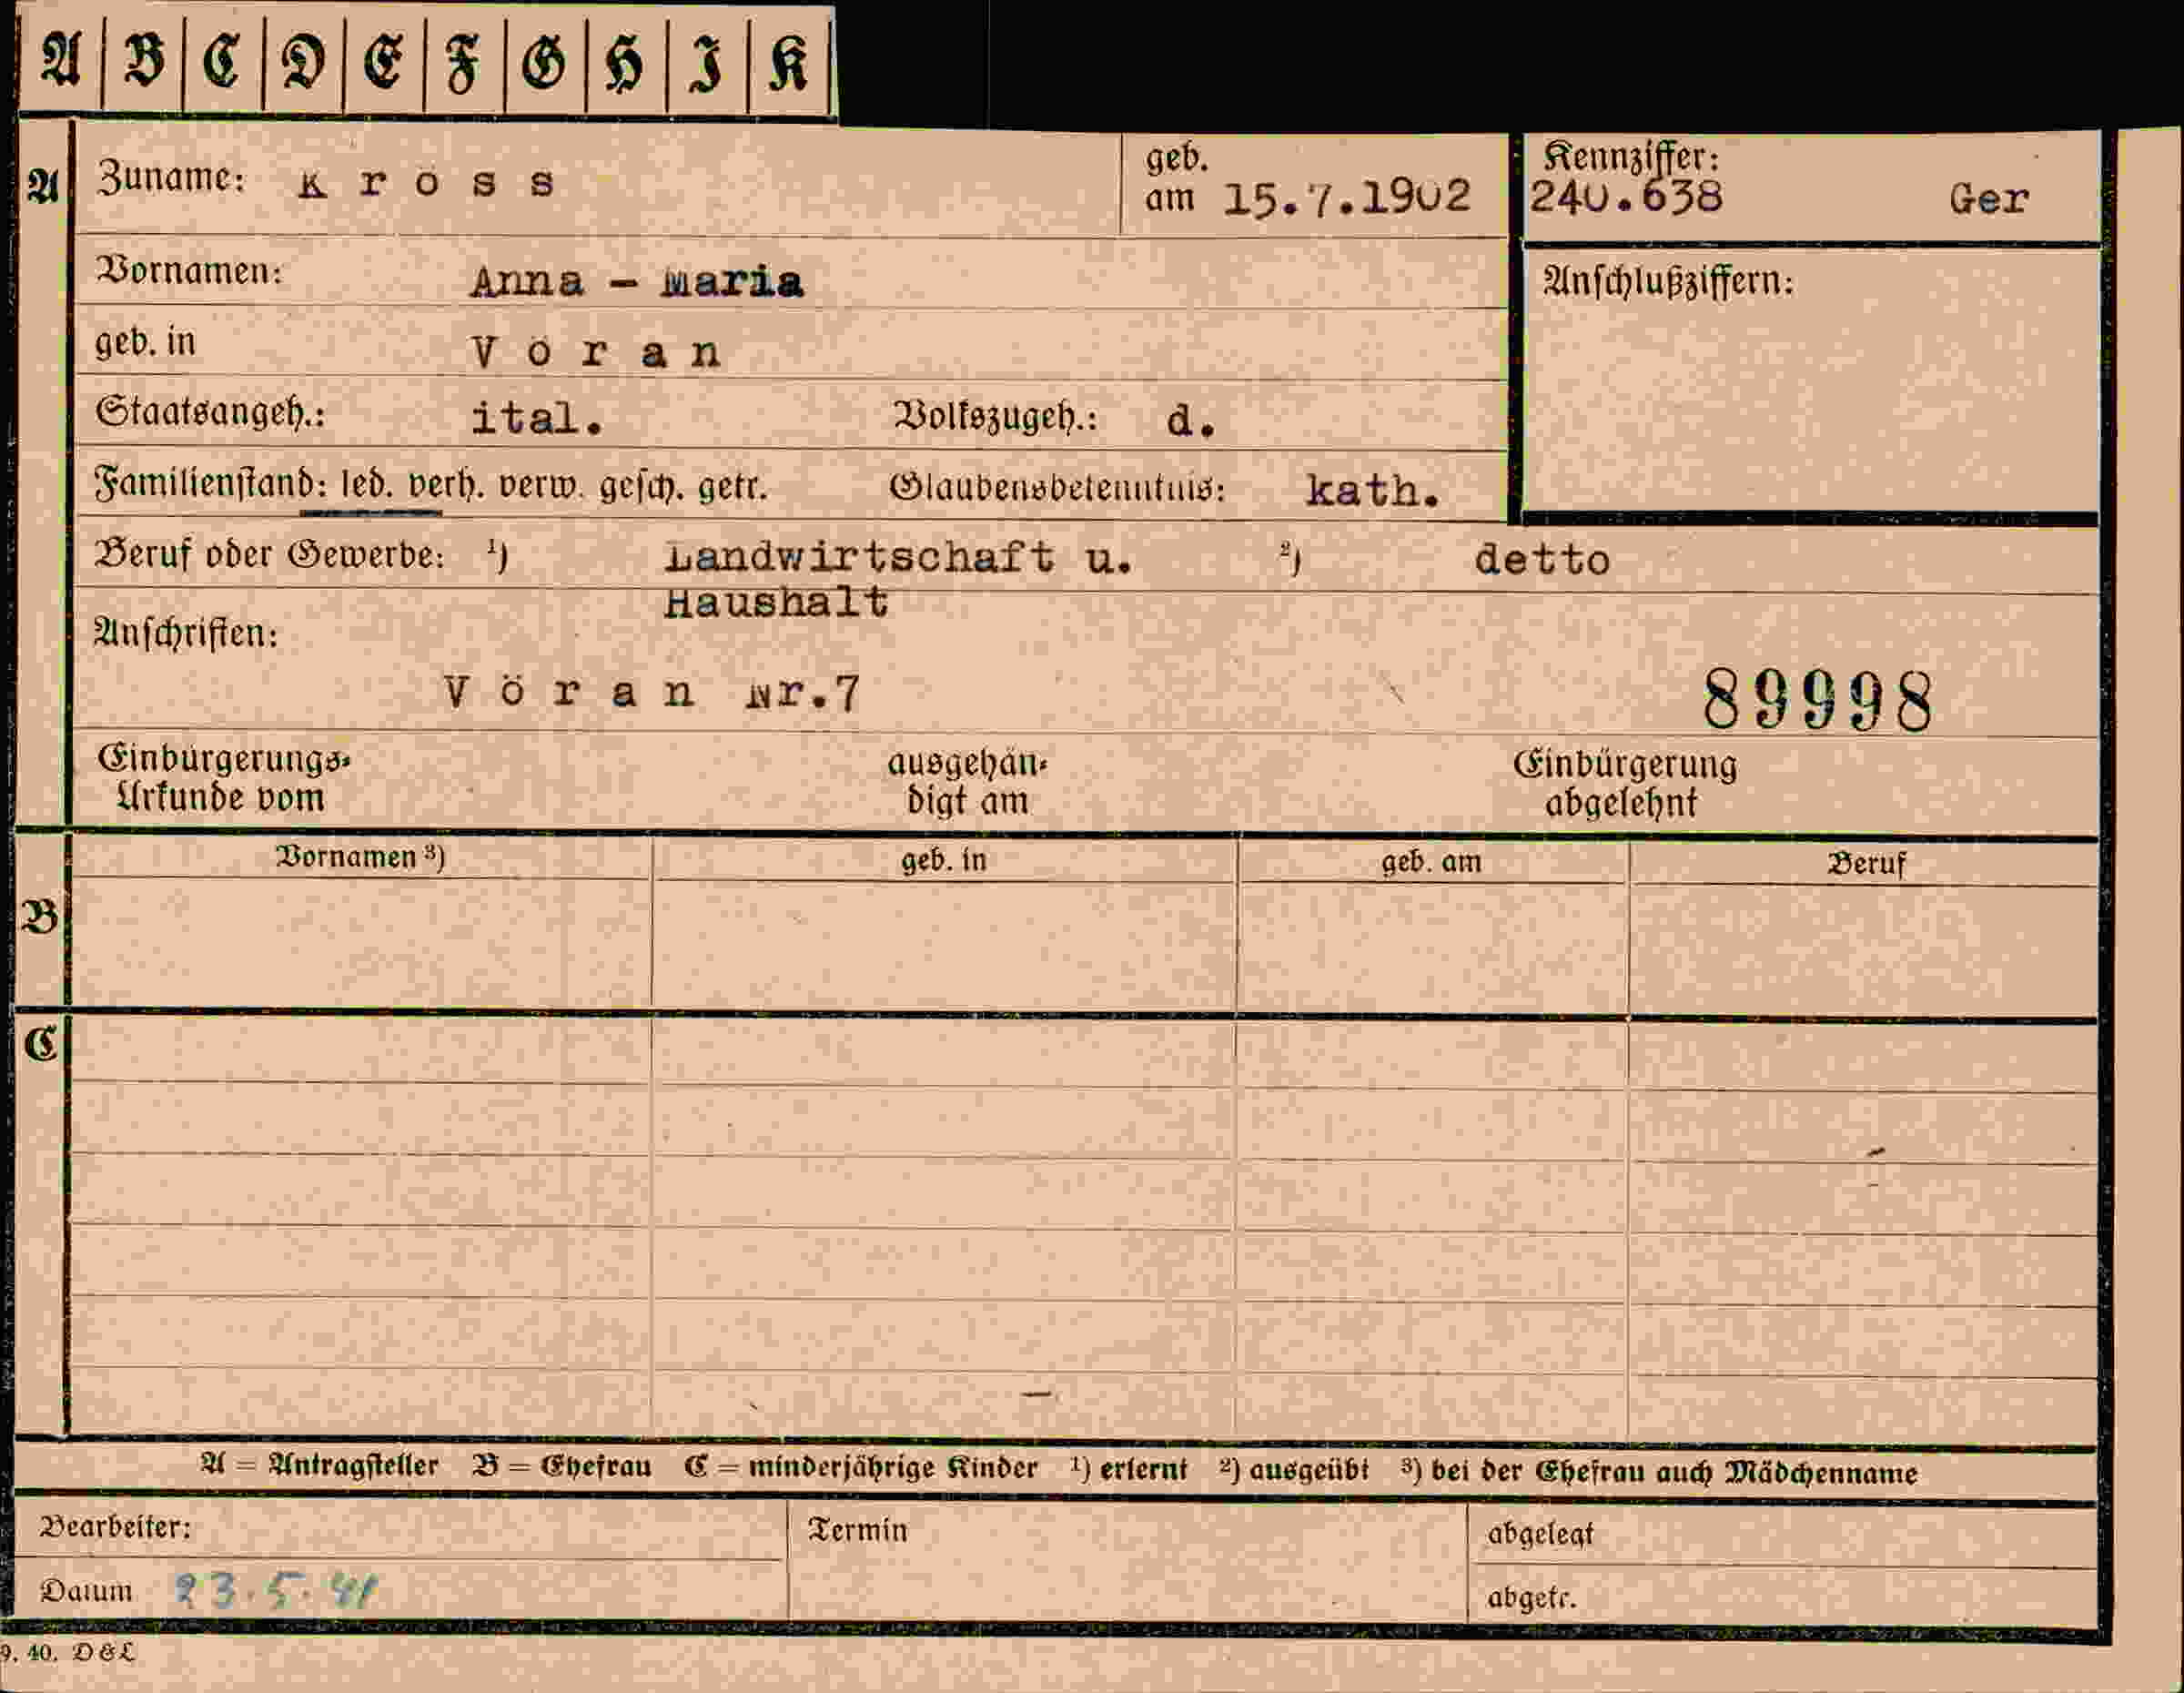 A B C D E F G H I K
A Zuname: Kröss geb. am 15.7.1902 Kennziffer: 240.638 Ger
Vornamen: Anna - Maria Anschlußziffern:
geb. in Vöran
Staatsangeh.: ital. Volkszugeh.: d.
Familienstand: led. verh. verw. gesch. getr. Glaubensbekenntnis: kath.
Beruf oder Gewerbe: ¹) Landwirtschaft u. ²) detto
Haushalt
Anschriften:
Vöran Nr.7 89998
Einbürgerungs- ausgehän- Einbürgerung
Urkunde vom digt am abgelehnt
Vornamen ³) geb. in geb. am Beruf
B
C
A = Antragsteller B = Ehefrau C = minderjährige Kinder ¹) erlernt ²) ausgeübt ³) bei der Ehefrau auch Mädchenname
Bearbeiter: Termin abgelegt
Datum 23.5.41 abgetr.
9. 40. D&L